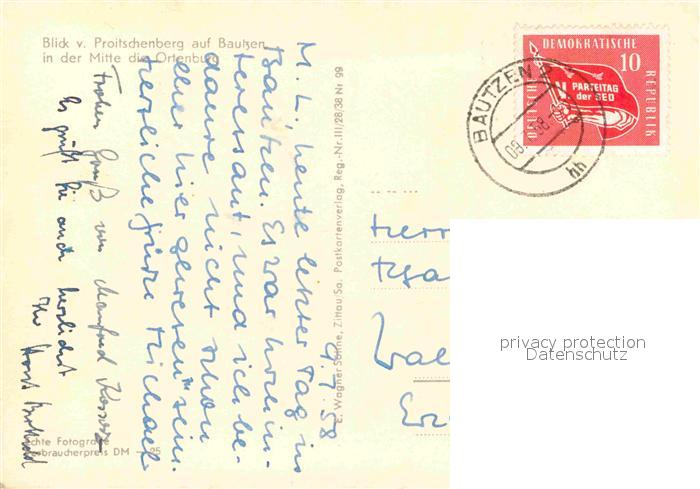 Blick v. Proitschenberg auf Bautzen
in der Mitte die Ortenburg
DEUTSCHE
DEMOKRATISCHE
REPUBLIK
10
V. PARTEITAG
der SED
BAUTZEN 2
hh
9.7.58
M. L., heute letzter Tag in
Bautzen. Es war hochin-
teressant, und ich be-
daure nicht schon
eher hier gewesen zu sein.
Herzliche Grüße Michael
Frohen Gruß von Manfred
Es grüßt Sie auch herzlichst
Ihr Horst
E. Wagner Söhne, Zittau/Sa. Postkartenverlag, Reg.-Nr. III/28/38 Nr 99
Herrn
Erz
privacy protection
Datenschutz
Echte Fotografie
Verbraucherpreis DM —.25